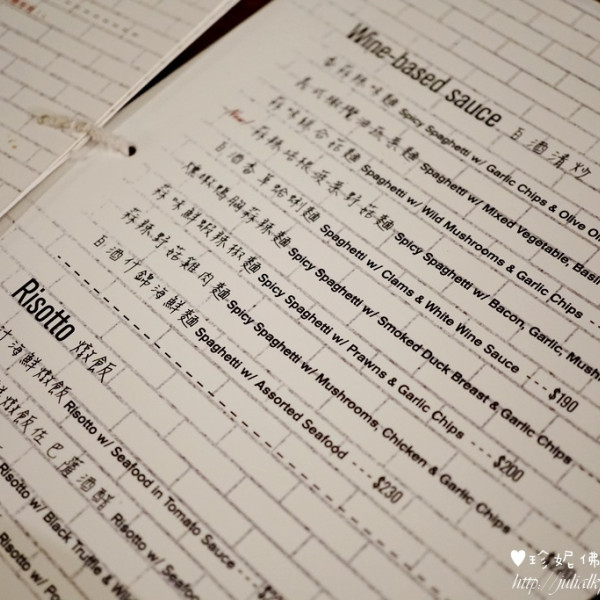 Wine-based sauce 白酒清炒
香蒜辣味麵 Spicy Spaghetti w/ Garlic Chips & Olive
義式橄欖油蔬菜麵 Spaghetti w/ Mixed Vegetable, Basil
New! 蒜味綜合菇麵 Spaghetti w/ Wild Mushrooms & Garlic Chips
蒜辣培根蔬菜野菇麵 Spicy Spaghetti w/ Bacon, Garlic,
白酒香草蛤蜊麵 Spaghetti w/ Clams & White Wine Sauce --- $190
燻櫻鴨胸蒜辣麵 Spicy Spaghetti w/ Smoked Duck Breast & Garlic Chips
蒜味鮮蝦辣椒麵 Spicy Spaghetti w/ Prawns & Garlic Chips --- $200
蒜辣野菇雞肉麵 Spicy Spaghetti w/ Mushrooms, Chicken & Garlic Chips
白酒什錦海鮮麵 Spaghetti w/ Assorted Seafood --- $230
Risotto 燉飯
汁海鮮燉飯 Risotto w/ Seafood in Tomato Sauce
燉飯佐巴薩酒醋 Risotto w/
Risotto w/ Black Truffle &
Risotto w/
♥珍妮佛
http://juli.dk